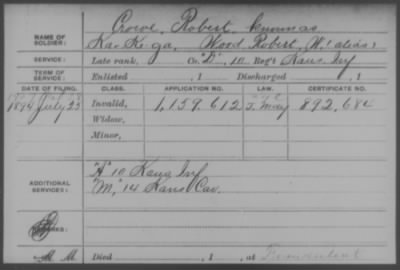 Crowe, Robert, known as
NAME OF SOLDIER: Ka-Ki-ga, Wood Robert, W. (alias)
SERVICE: Late rank, Co. "D", 10 Reg't Kans. Inf
TERM OF SERVICE: Enlisted , 1 Discharged , 1
DATE OF FILING. CLASS. APPLICATION NO. LAW. CERTIFICATE NO.
1894 July 23 Invalid, 1,159,612 892,684
Widow,
Minor,
ADDITIONAL SERVICES: "A" 10 Kans Inf
"M," 14 Kans Cav.
REMARKS:
Died , 1 , at